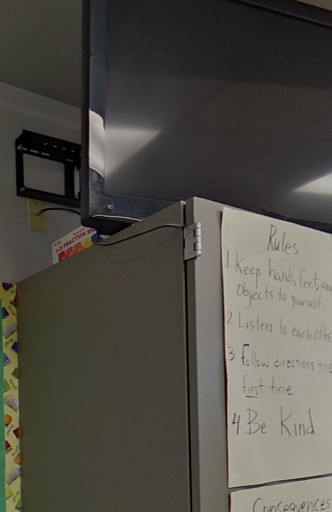 FRACTION
Rules
1 Keep hands, feet, an
Objects to yourself.
2 Listen to each othe
3 Follow directions the
first time
4 Be Kind
Consequences